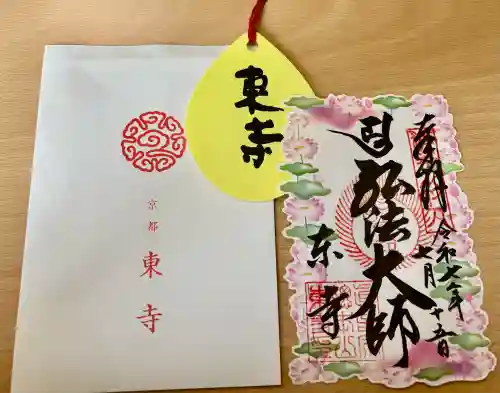 京都
東寺
東寺
奉拝
弘法大師
東寺
令和七年
七月十五日